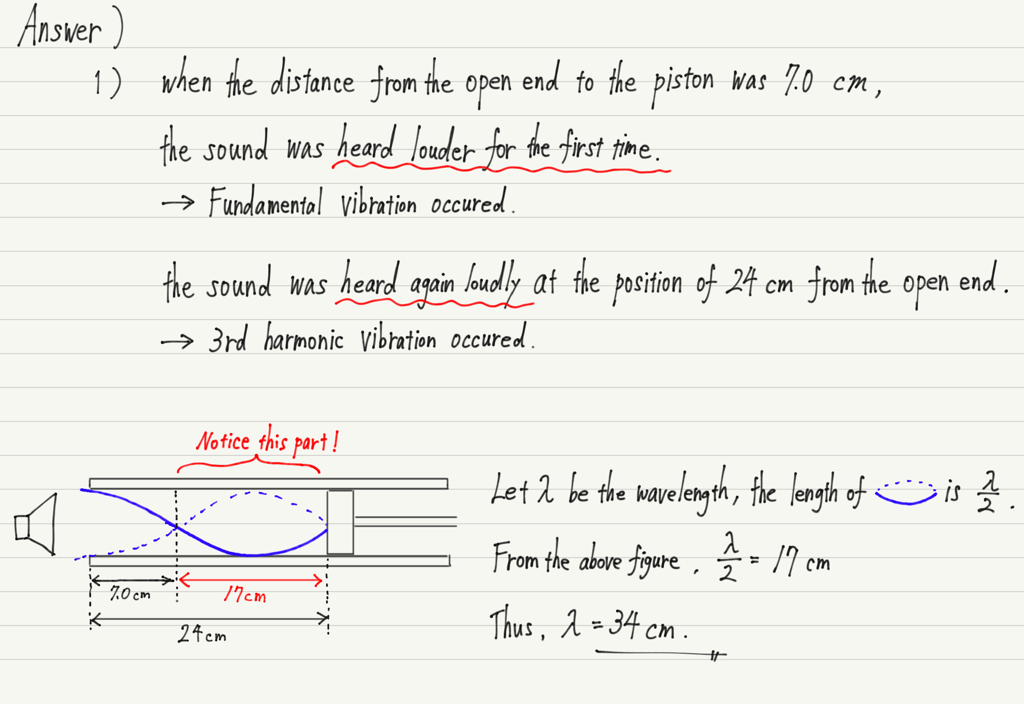 Answer)
1) when the distance from the open end to the piston was 7.0 cm,
the sound was heard louder for the first time.
→ Fundamental vibration occured.
the sound was heard again loudly at the position of 24 cm from the open end.
→ 3rd harmonic vibration occured.
Notice this part!
7.0cm
17cm
24cm
Let λ be the wavelength, the length of is λ/2.
From the above figure, λ/2 = 17 cm
Thus, λ = 34 cm.